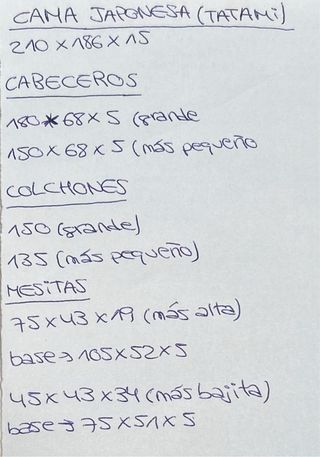 CAMA JAPONESA (TATAMI)
210 x 186 x 15
CABECEROS
180 x 68 x 5 (grande
150 x 68 x 5 (más pequeño
COLCHONES
150 (grande)
135 (más pequeño)
MESITAS
75 x 43 x 19 (más alta)
base → 105 x 52 x 5
45 x 43 x 34 (más bajita)
base → 75 x 51 x 5